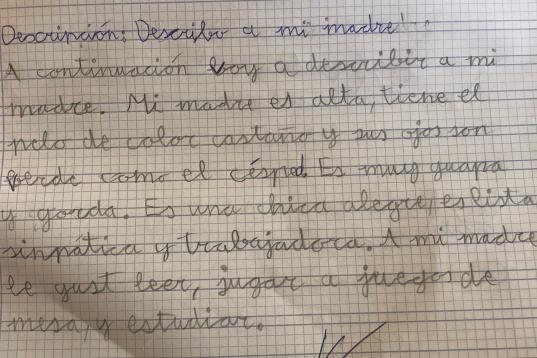 Descripción: Describo a mi madre
A continuación voy a describir a mi
madre. Mi madre es alta, tiene el
pelo de color castaño y sus ojos son
verde como el césped. Es muy guapa
y gorda. Es una chica alegre, es lista
sinpática y trabajadora. A mi madre
le gust leer, jugar a juegos de
mesa, y estudiar.